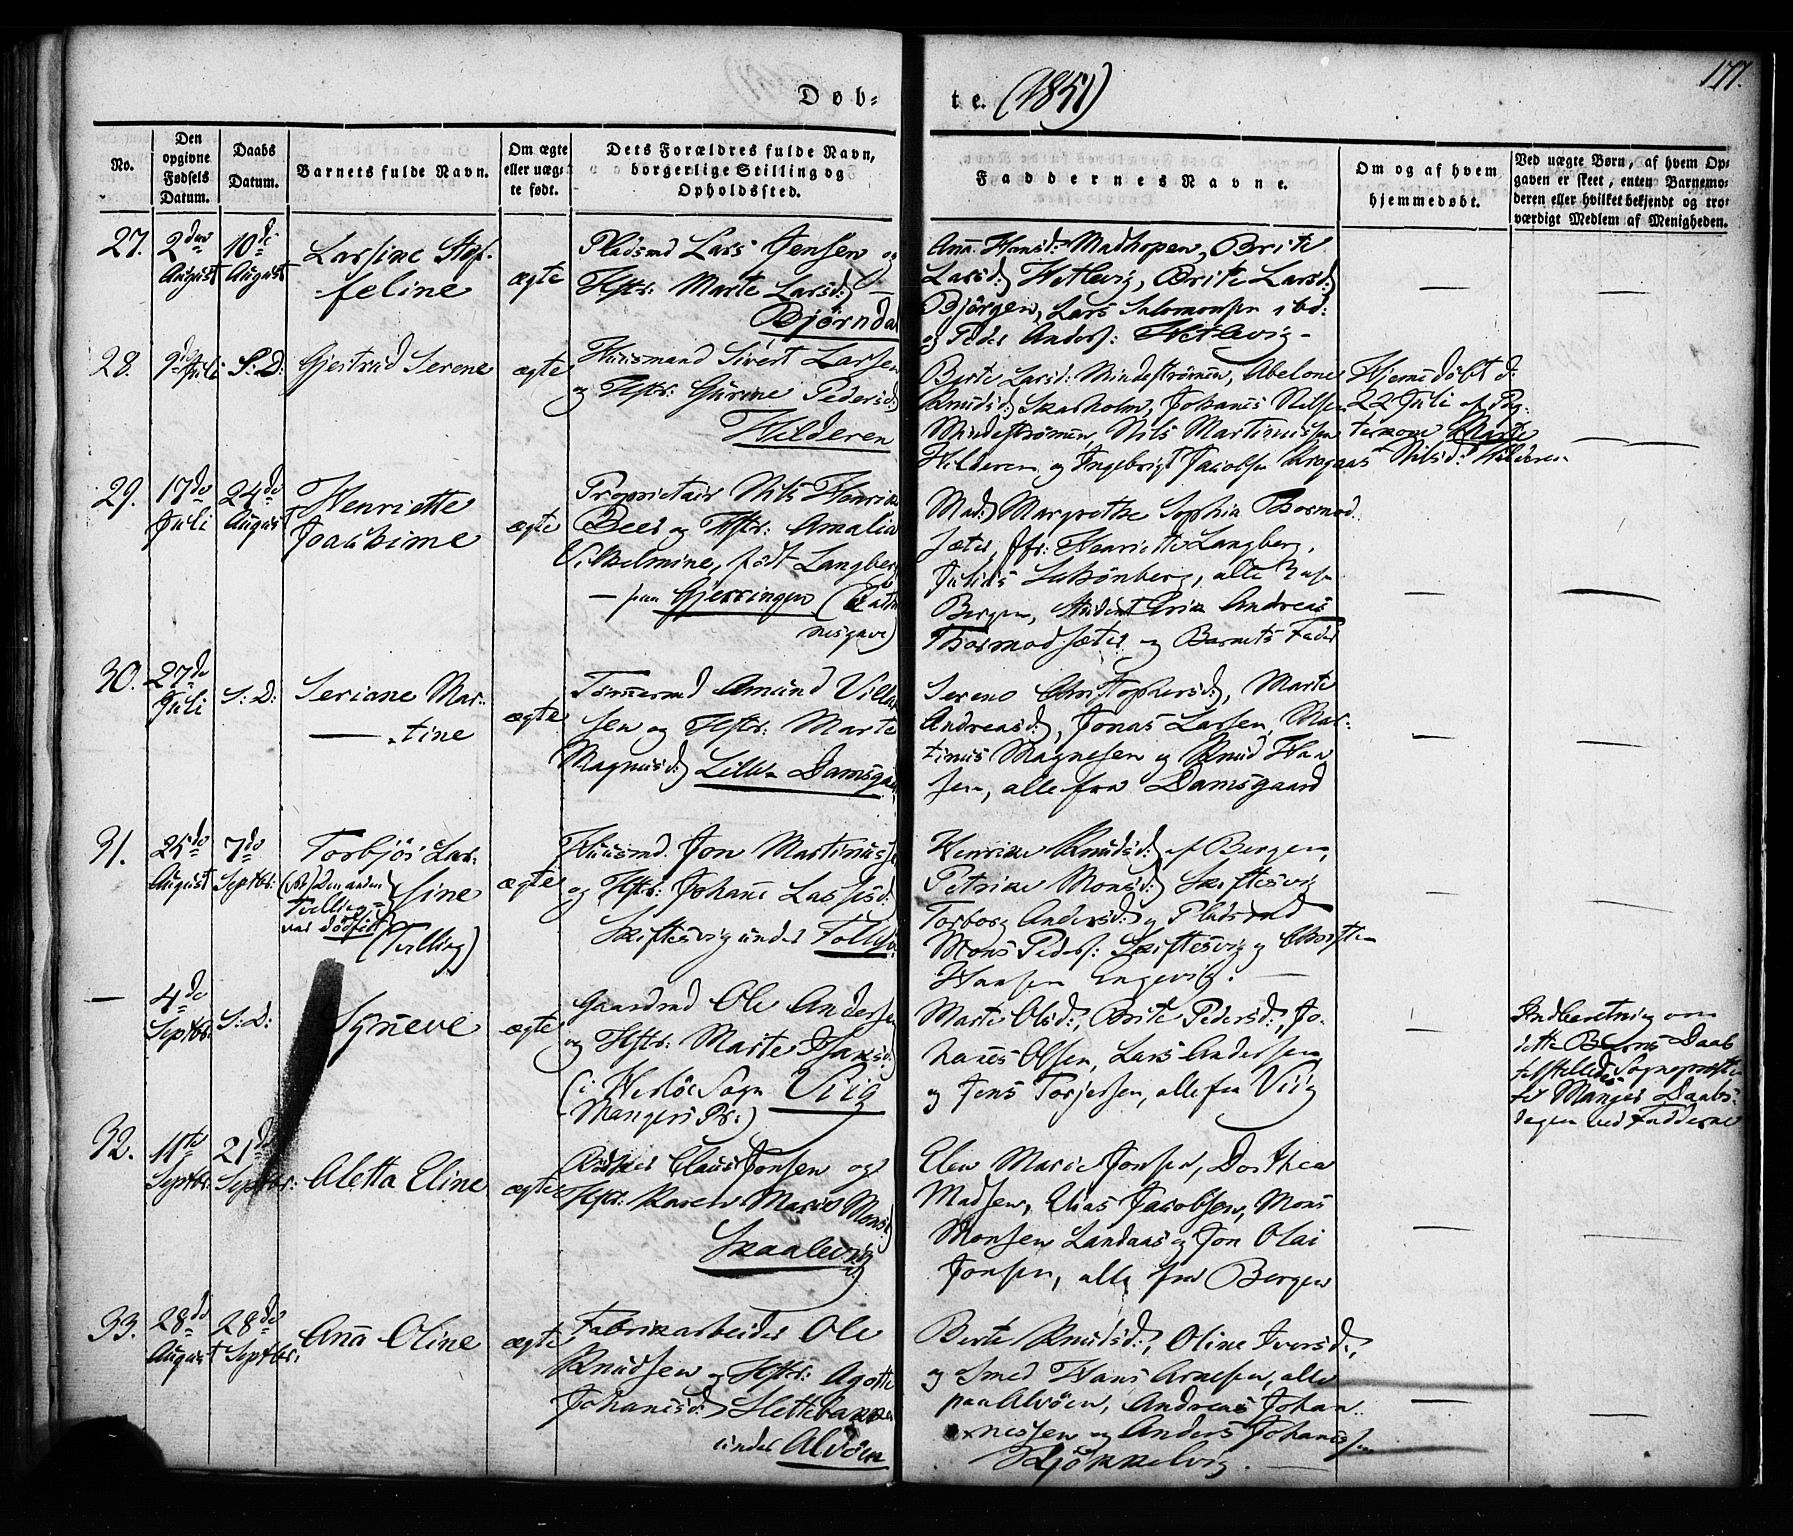 177.
Døb-
te. (1851)
No.
Den opgivne Fødsels Datum.
Daabs Datum.
Barnets fulde Navn.
Om ægte eller uæg- te født.
Dets Forældres fulde Navn, borgerlige Stilling og Opholdssted.
Faddernes Navne.
Om og af hvem hjemmedøbt.
Ved uægte Børn, af hvem Op- gaven er skeet, enten Barnemo- deren eller hvilket bekjendt og tro- værdigt Medlem af Menigheden.
27.
2den August
10de August
Larsine Stef-
feline
ægte
Pladsmd Lars Jensen og
Hstr: Marte Larsd:
Bjørndal
Anna Hansd: Madhopen, Brite
Larsd: Hetlevig, Brite Larsd:
Bjørgen, Lars Salomonsen ibd:
og Peder Anders: Hetlevig -
28.
9de Juli
S: D:
Gjertrud Serene
ægte
Huusmand Sivert Larsen
og Hstr: Gurine Pedersd:
Hilderen
Berte Larsd: Mindestrømen, Abelone
Knudsd: Skarholm, Johanes Nilsen
Mindestrømen, Nils Martinussen
Hilderen og Ingebrigt Jacobsen
Hjemedøbt d:
22 Juli af
Marte
Nilsd: Hilderen
29.
17de Juli
24de August
Henriette
Joachime
ægte
Proprietair Nils Henrik
Beer og Hstr: Amalia
Vilhelmine, født Langberg
- paa Gjerringen (
nesgave)
Mad: Margrethe Sophia Thormod-
sæter, Jfr: Henriette Langberg,
Julius Schönberg, alle
Bergen, Student Erik Andreas
Thormodsæter og Barnets Fader
30.
27de Juli
S: D:
Seriane Mar-
tine
ægte
Tømmermd Amund Villa
sen og Hstr: Marte
Magnusd: Lille Damsgaard
Serene Christophersd:, Marte
Andreasd:, Jonas Larsen, Mar-
tinus Magnesen og Knud Han
sen, alle fra Damsgaard
31.
25de August
7de Septbr:
Torbjør Lar-
sine
(NB) Den anden
Tvilling
var dødfødt
(Tvilling)
ægte
Huusmd. Jon Martinussen
og Hstr: Johane Lassesd:
Skiftesvig under
Henrike Knudsd: af Bergen,
Petrike Monsd: Skiftesvig
Torborg Andersd: og Pladsmd
Mons Peders: Skiftesvig og Christen
Hansen Engevig.
4de Septbr:
S: D:
Syneve
ægte
Gaardmd Ole Andersen
og Hstr: Marte Isaksd:
(i Herløe Sogn Viig
Mangers Pr:)
Marte Olsd:, Brite Pedersd:, Jo-
hanes Olsen, Lars Andersen
og Jens Torjersen, alle fra Viig
Indberetning om
dette Barns Daab
tilstilledes Sognepræsten
til Manger Daabs-
dagen ved Fadderne
32.
11te Septbr:
21de Septbr:
Aletta Eline
ægte
Claus Jonsen og
Hstr: Karen Marie Monsd:
Skaalevig
Elen Marie Jonsen, Dorthea
Madsen, Elias Jacobsen, Mons
Monsen Landaas og Jon Olai
Jonsen, alle fra Bergen
33.
28de August
28de Septbr:
Ana Oline
ægte
Fabrikarbeider Ole
Knudsen og Hstr: Agathe
Johanesd: Slettebakken
under Alvøen
Berte Knudsd:, Oline Iversd:,
og Smed Hans Arnesen, alle
paa Alvøen, Andreas Johan-
nessen og Anders Johanessen
Kjøkkelvig.